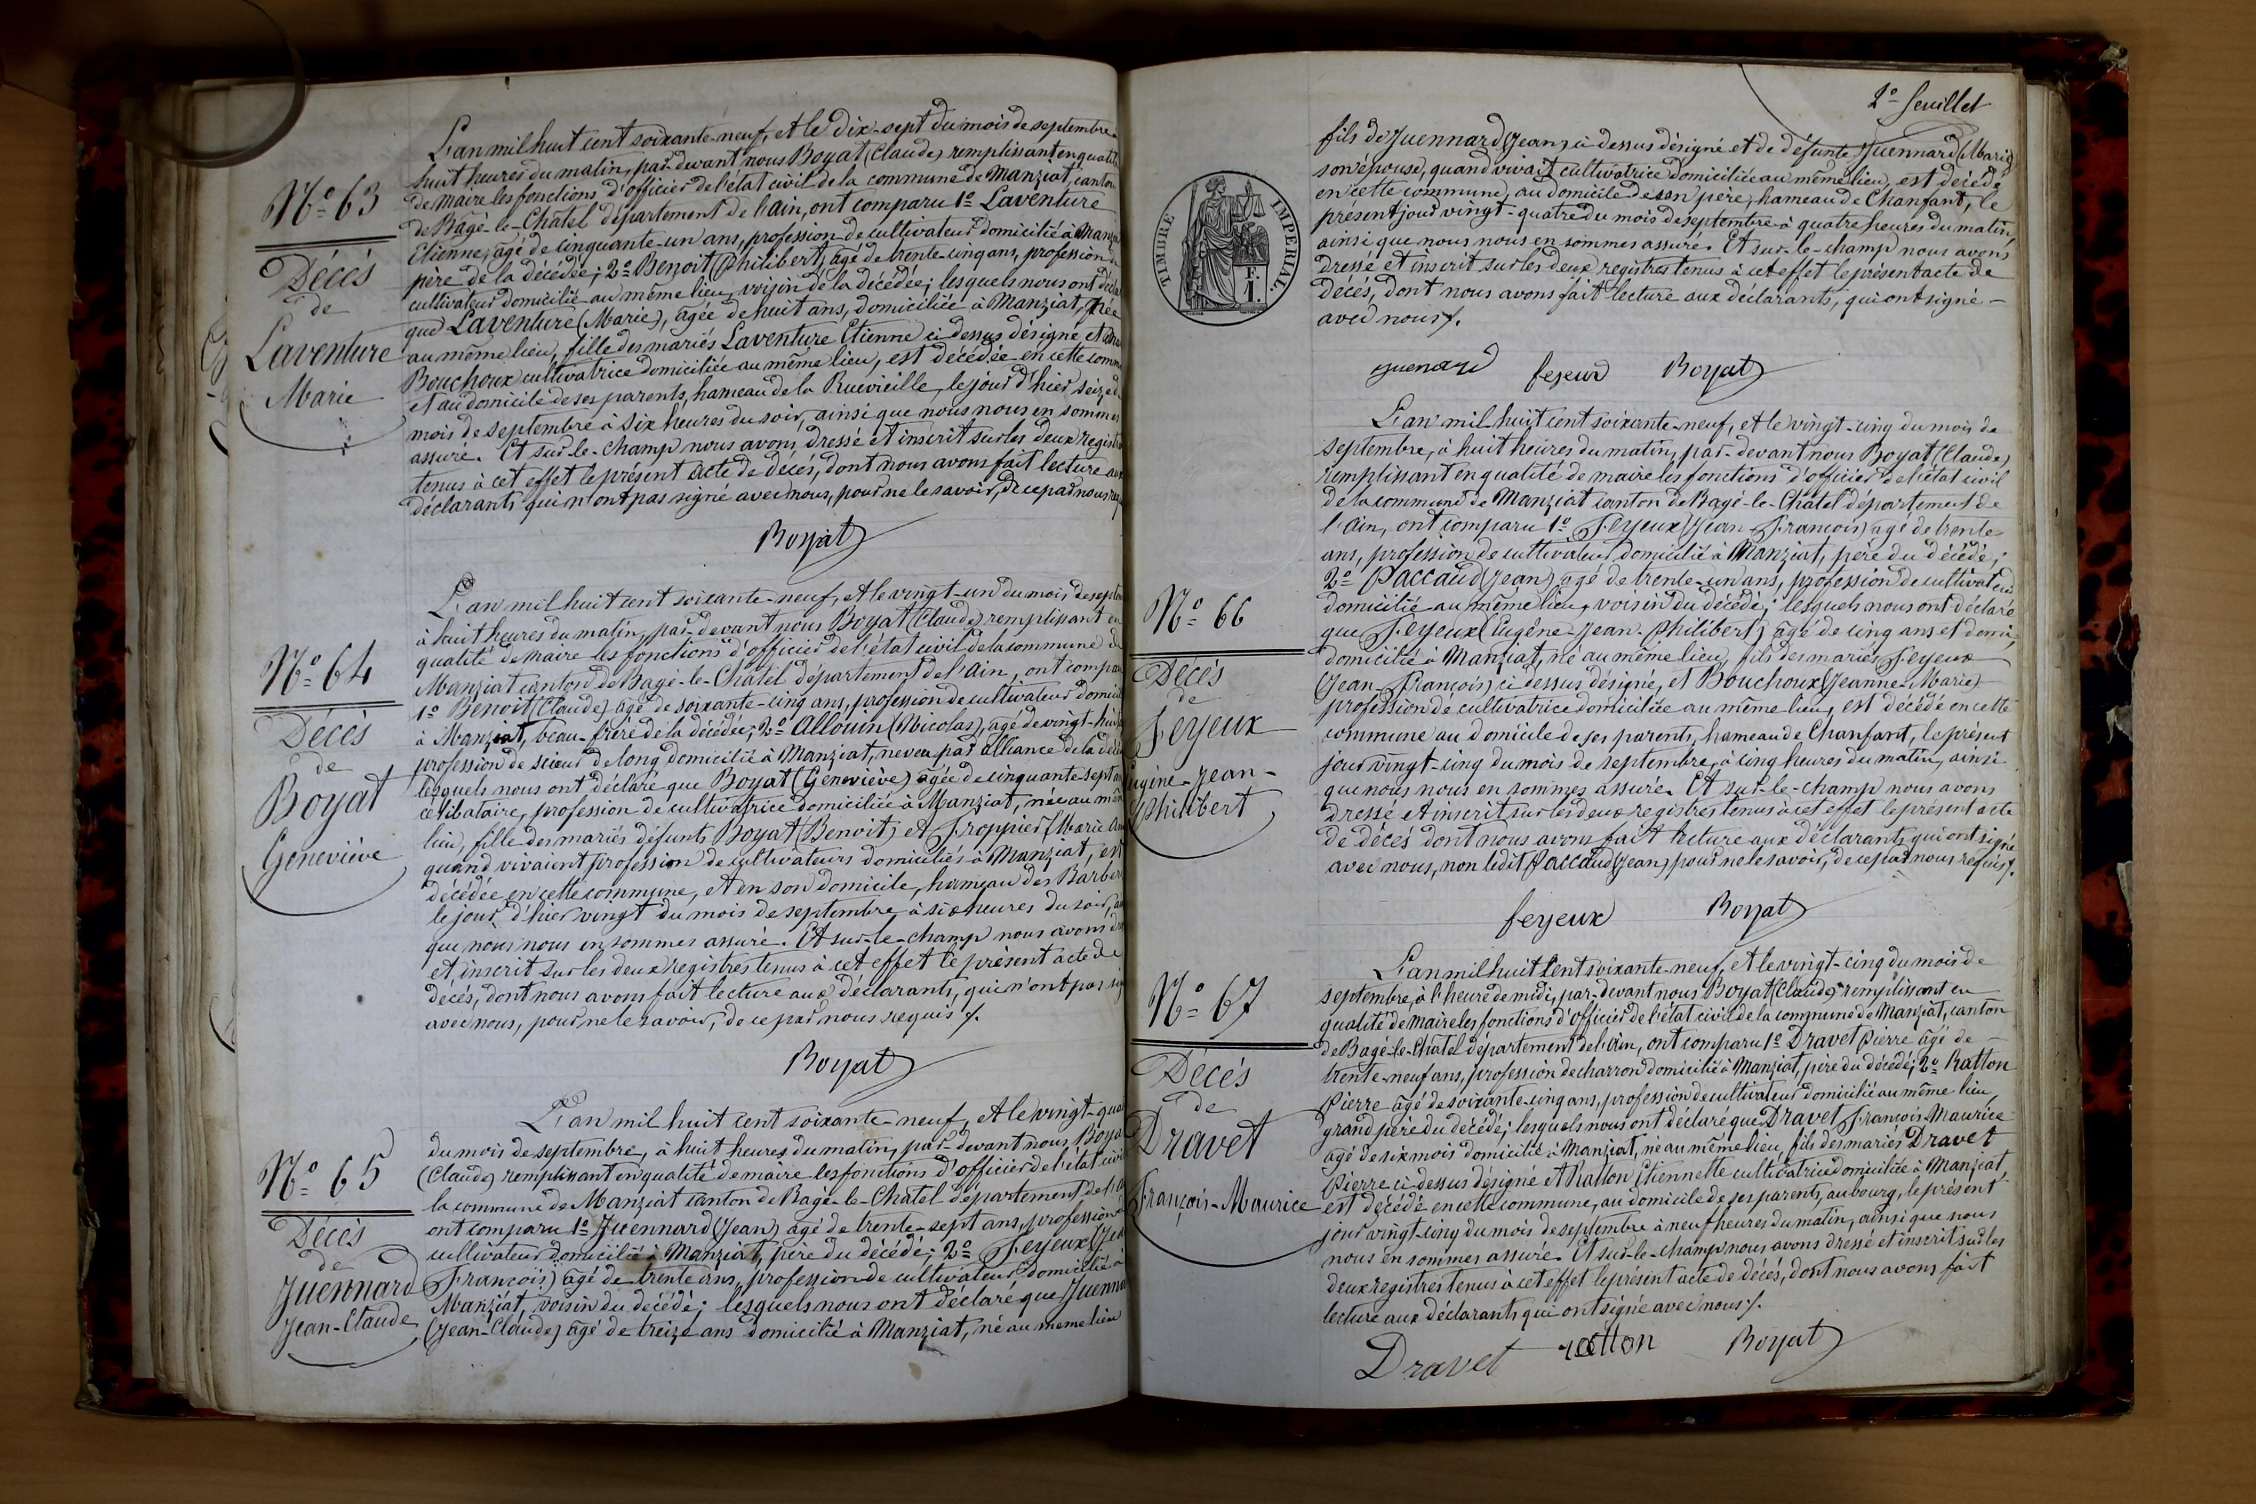 L'an mil huit cent soixante-neuf, et le dix-sept du mois de septembre
huit heures du matin, par-devant nous Boyat (Claude) remplissant en qualité
de maire les fonctions d'officier de l'état civil de la commune de Manziat, canton
de Bâgé-le-Châtel département de l'ain, ont comparu 1º Laventure
Etienne, âgé de cinquante-un ans, profession de cultivateur domicilié à Manziat
père de la décédée; 2º Benoit (Philibert) âgé de trente-cinq ans, profession
cultivateur domicilié au même lieu, voisin de la décédée; lesquels nous ont
que Laventure (Marie), âgée de huit ans, domiciliée à Manziat, née
au même lieu, fille des mariés Laventure Etienne ci-dessus désigné et
Bouchoux cultivatrice domiciliée au même lieu, est décédée en cette
et au domicile de ses parents, hameau de la Ruevieille, le jour d'hier seize
mois de septembre à six heures du soir, ainsi que nous nous en sommes
assuré. Et sur-le-champ nous avons dressé et inscrit sur les deux
tenus à cet effet le présent acte de décés, dont nous avons fait lecture
déclarants qui n'ont pas signé avec nous, pour ne le savoir, de ce par nous
Boyat
Nº 63
Décés
de
Laventure
Marie
L'an mil huit cent soixante-neuf, et le vingt-un du mois de
à huit heures du matin, par-devant nous Boyat (Claude) remplissant en
qualité de maire les fonctions d'officier de l'état civil de la commune de
Manziat canton de Bâgé-le-Châtel département de l'ain, ont
1º Benoit (Claude) âgé de soixante-cinq ans, profession de cultivateur
à Manziat, beau-frère de la décédée; 2º Allouin (Nicolas), âgé de vingt-huit
profession de scieur de long domicilié à Manziat, neveu par alliance de la
lesquels nous ont déclaré que Boyat (Geneviève) âgée de cinquante-sept
célibataire, profession de cultivatrice domiciliée à Manziat, née au
lieu, fille des mariés défunts Boyat (Benoit) et Froppier (Marie
quand vivaient profession de cultivateurs domiciliés à Manziat, est
décédée en cette commune, et en son domicile, hameau des
le jour d'hier vingt du mois de septembre à six heures du soir,
que nous nous en sommes assuré. Et sur-le-champ nous avons
et inscrit sur les deux registres tenus à cet effet le présent acte de
décés, dont nous avons fait lecture aux déclarants, qui n'ont pas
avec nous, pour ne le savoir, de ce par nous requis /.
Boyat
Nº 64
Décés
de
Boyat
Geneviève
L'an mil huit cent soixante-neuf, et le vingt-quatre
du mois de septembre, à huit heures du matin, par-devant nous Boyat
(Claude) remplissant en qualité de maire les fonctions d'officier de l'état civil
la commune de Manziat canton de Bâgé-le-Châtel département de
ont comparu 1º Juennard (Jean) âgé de trente-sept ans, profession
cultivateur domicilié à Manziat, père du décédé; 2º Feyeux (Jean
François) âgé de trente ans, profession de cultivateur, domicilié à
Manziat, voisin du décédé; lesquels nous ont déclaré que
(Jean-Claude) âgé de treize ans domicilié à Manziat, né au même lieu
Nº 65
Décés
de
Juennard
Jean-Claude
2º feuillet
TIMBRE IMPERIAL
fils de Juennard (Jean) ci-dessus désigné et de défunte Juennard (Marie)
son épouse, quand vivait cultivatrice domiciliée au même lieu, est décédé
en cette commune, au domicile de son père, hameau de Chanfant, le
présent jour vingt-quatre du mois de septembre à quatre heures du matin,
ainsi que nous nous en sommes assuré. Et sur-le-champ nous avons
dressé et inscrit sur les deux registres tenus à cet effet le présent acte de
décés, dont nous avons fait lecture aux déclarants, qui ont signé
avec nous /.
feyeux Boyat
L'an mil huit cent soixante-neuf, et le vingt-cinq du mois de
septembre, à huit heures du matin, par-devant nous Boyat (Claude)
remplissant en qualité de maire les fonctions d'officier de l'état civil
de la commune de Manziat canton de Bâgé-le-Châtel département de
l'ain, ont comparu 1º Feyeux (Jean-François) âgé de trente
ans, profession de cultivateur domicilié à Manziat, père du décédé;
2º Paccaud (Jean) âgé de trente-un ans, profession de cultivateur
domicilié au même lieu, voisin du décédé; lesquels nous ont déclaré
que Feyeux (Eugène-Jean-Philibert) âgé de cinq ans et demi,
domicilié à Manziat, né au même lieu, fils des mariés Feyeux
(Jean-François) ci-dessus désigné, et Bouchoux (Jeanne-Marie)
profession de cultivatrice domiciliée au même lieu, est décédé en cette
commune au domicile de ses parents, hameau de Chanfant, le présent
jour vingt-cinq du mois de septembre, à cinq heures du matin, ainsi
que nous nous en sommes assuré. Et sur-le-champ nous avons
dressé et inscrit sur les deux registres tenus à cet effet le présent acte
de décés dont nous avons fait lecture aux déclarants, qui ont signé
avec nous, non ledit Paccaud (Jean) pour ne le savoir, de ce par nous requis /.
feyeux Boyat
Nº 66
Décés
de
Feyeux
Eugène-Jean-
Philibert
L'an mil huit cent soixante-neuf, et le vingt-cinq du mois de
septembre, à l'heure de midi, par-devant nous Boyat (Claude) remplissant en
qualité de maire les fonctions d'officier de l'état civil de la commune de Manziat, canton
de Bâgé-le-Châtel département de l'ain, ont comparu 1º Dravet Pierre âgé de
trente-neuf ans, profession de charron domicilié à Manziat, père du décédé; 2º Ratton
Pierre âgé de soixante-cinq ans, profession de cultivateur domicilié au même lieu,
grand père du décédé; lesquels nous ont déclaré que Dravet François-Maurice
âgé de six mois domicilié à Manziat, né au même lieu, fils des mariés Dravet
Pierre ci-dessus désigné et Ratton Etiennette cultivatrice domiciliée à Manziat,
est décédé en cette commune, au domicile de ses parents, au bourg, le présent
jour vingt-cinq du mois de septembre à neuf heures du matin, ainsi que nous
nous en sommes assuré. Et sur-le-champ nous avons dressé et inscrit sur les
deux registres tenus à cet effet le présent acte de décés, dont nous avons fait
lecture aux déclarants qui ont signé avec nous /.
Dravet ratton Boyat
Nº 67
Décés
de
Dravet
François-Maurice